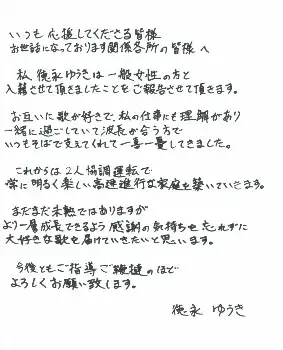 いつも応援してくださる皆様
お世話になっております関係各所の皆様へ
私 徳永ゆうきは一般女性の方と
入籍させて頂きましたことをご報告させて頂きます。
お互いに歌が好きで、私の仕事にも理解があり
一緒に過ごしていて波長が合う方で
いつもそばで支えてくれて一喜一憂してきました。
これからは2人協調運転で
常に明るく楽しい高速進行な家庭を築いていきます。
まだまだ未熟ではありますが
より一層成長できるよう感謝の気持ちを忘れずに
大好きな歌を届けていきたいと思います。
今後ともご指導ご鞭撻のほど
よろしくお願い致します。
徳永 ゆうき